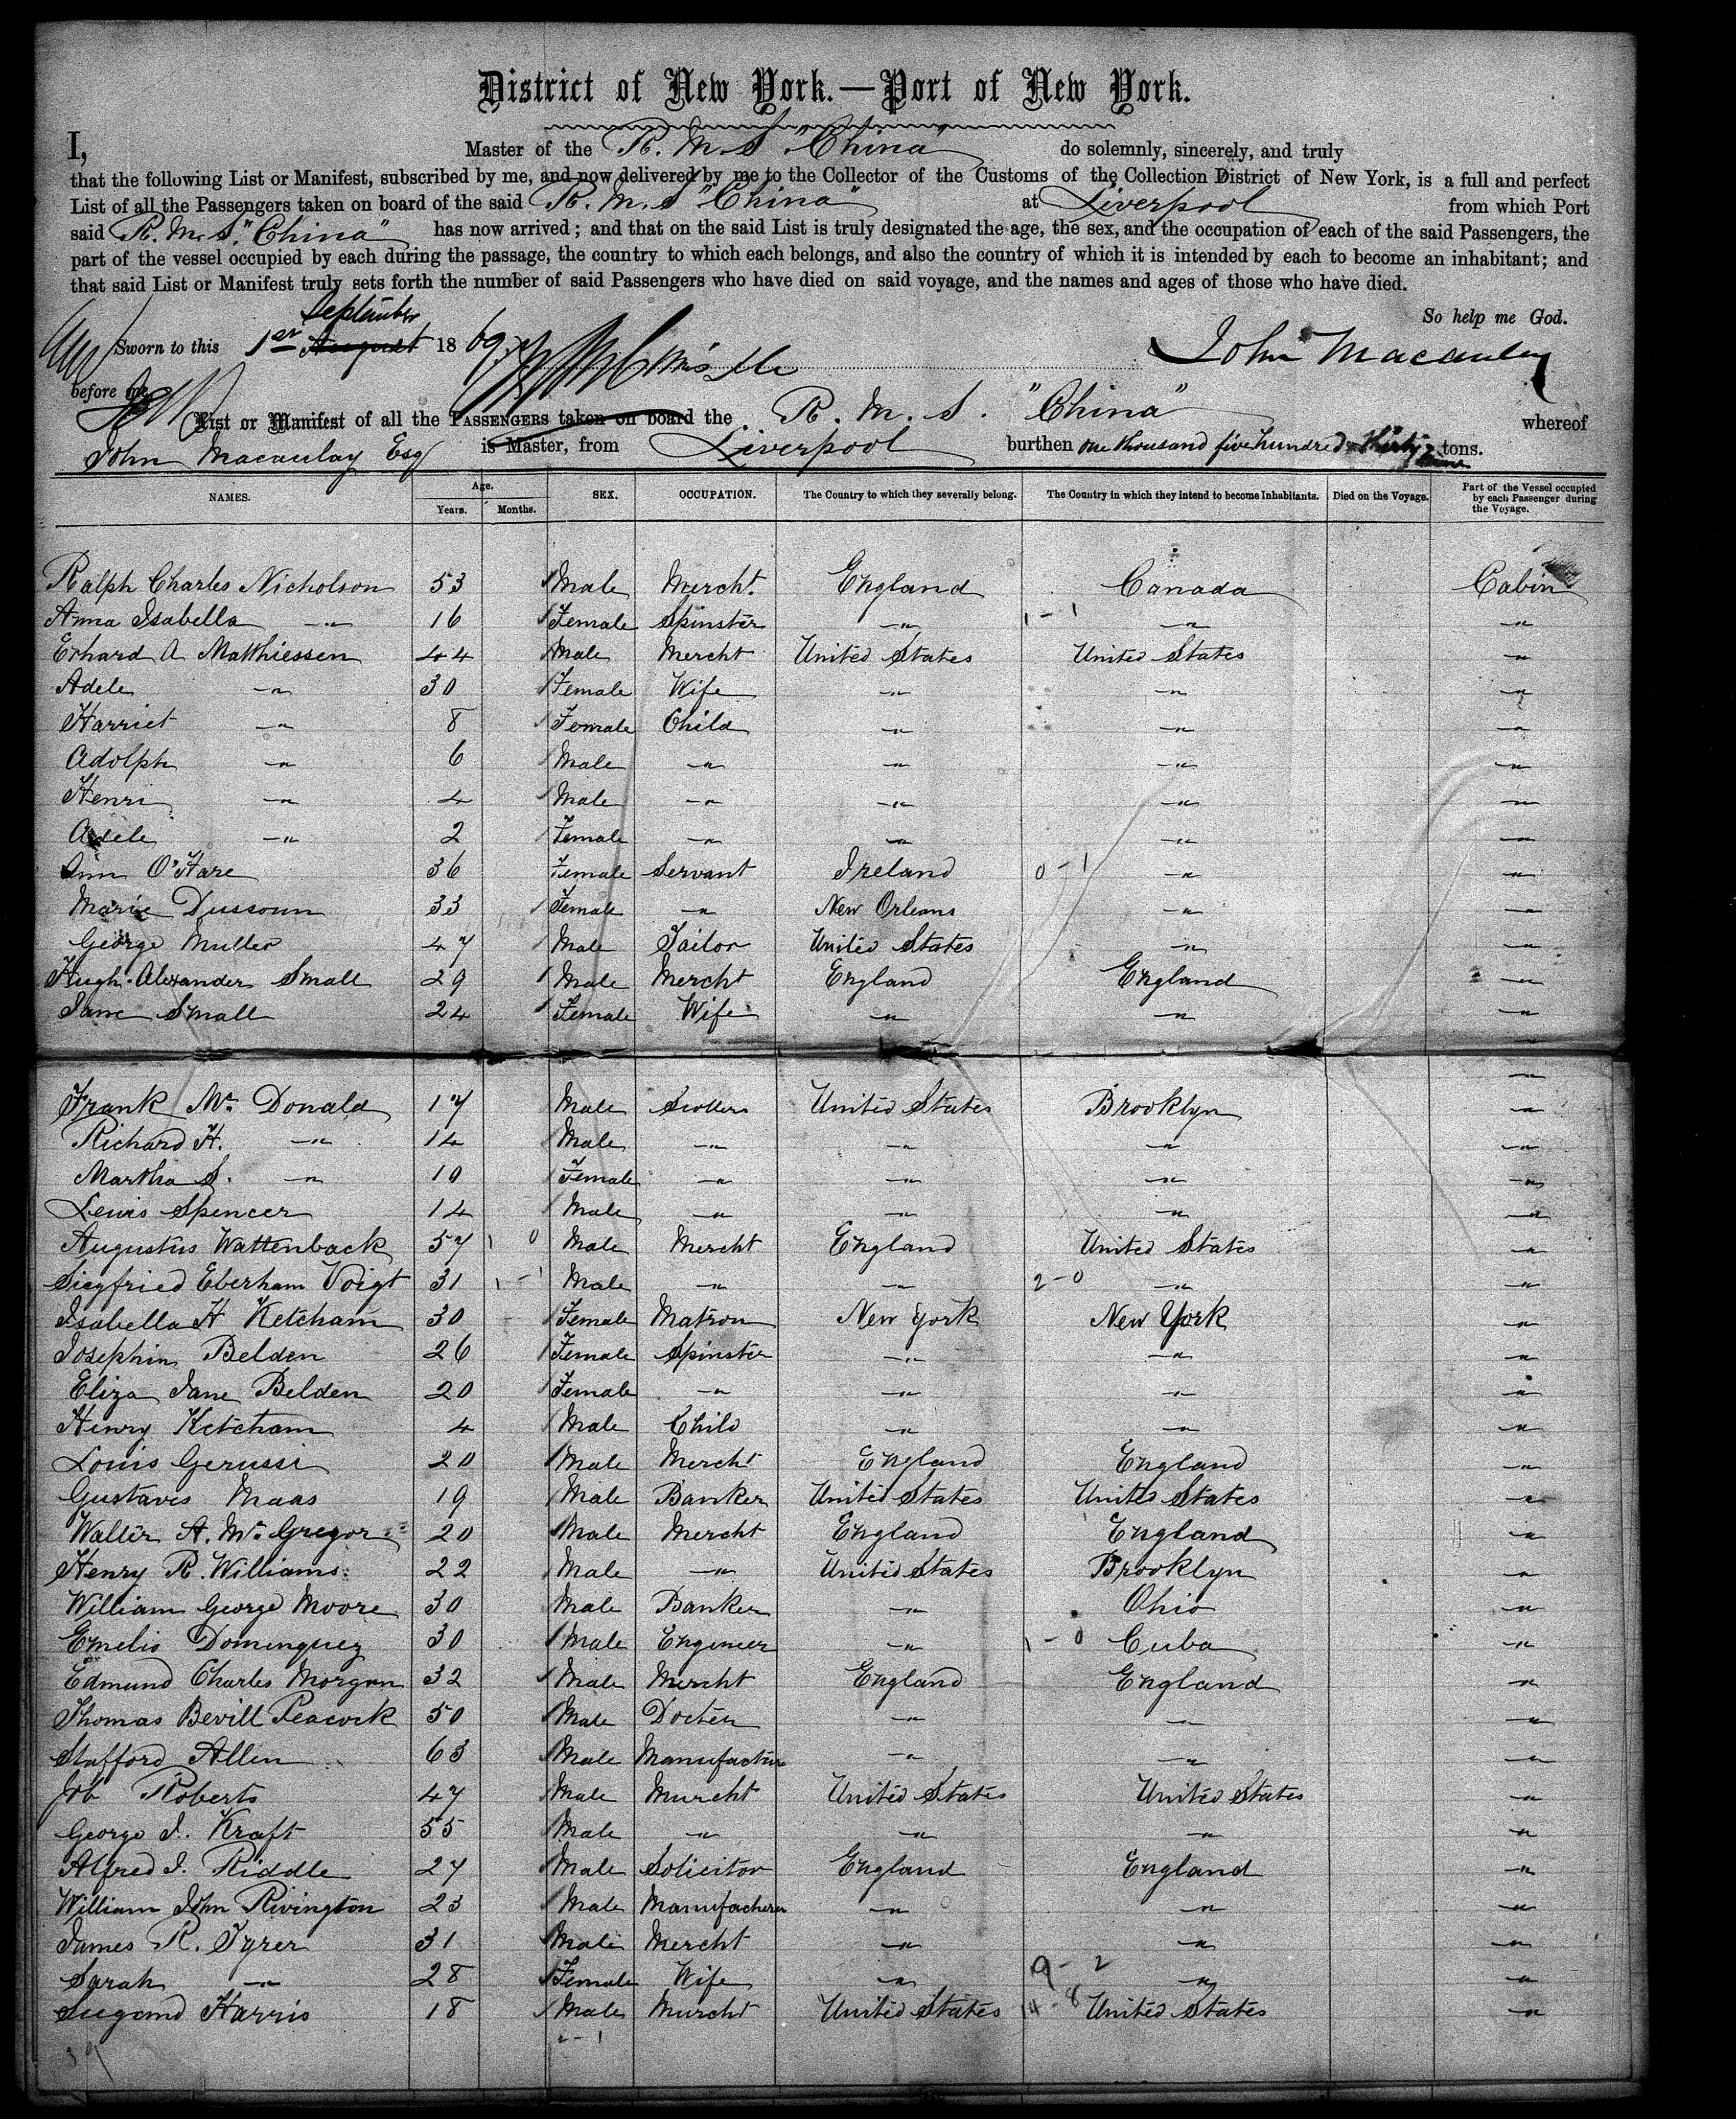 District of New York.—Port of New York.
I, Master of the R. M. S "China" do solemnly, sincerely, and truly
that the following List or Manifest, subscribed by me, and now delivered by me to the Collector of the Customs of the Collection District of New York, is a full and perfect
List of all the Passengers taken on board of the said R. M. S "China" at Liverpool from which Port
said R. M. S. "China" has now arrived; and that on the said List is truly designated the age, the sex, and the occupation of each of the said Passengers, the
part of the vessel occupied by each during the passage, the country to which each belongs, and also the country of which it is intended by each to become an inhabitant; and
that said List or Manifest truly sets forth the number of said Passengers who have died on said voyage, and the names and ages of those who have died.
So help me God.
September
Sworn to this 1st August 1869 John Macaulay
before me
List or Manifest of all the PASSENGERS taken on board the R. M. S. "China" whereof
John Macaulay Esq is Master, from Liverpool burthen one thousand five hundred thirty nine tons.
NAMES. Age. Years. Months. SEX. OCCUPATION. The Country to which they severally belong. The Country in which they intend to become Inhabitants. Died on the Voyage. Part of the Vessel occupied by each Passenger during the Voyage.
Ralph Charles Nicholson 53 Male Mercht. England Canada Cabin
Anna Isabella —"— 16 Female Spinster —"— 1 - 1 —"— —"—
Erhard A Matthiessen 44 Male Mercht United States United States —"—
Adele —"— 30 Female Wife —"— —"— —"—
Harriet —"— 8 Female Child —"— —"— —"—
Adolph —"— 6 Male —"— —"— —"— —"—
Henri —"— 4 Male —"— —"— —"— —"—
Adele —"— 2 Female —"— —"— —"— —"—
Ann O'Hare 36 Female Servant Ireland 0 - 1 —"— —"—
Marie Dussoun 33 Female —"— New Orleans —"— —"—
George Muller 47 Male Tailor United States —"— —"—
Hugh Alexander Small 29 Male Mercht England England —"—
Jane Small 24 Female Wife —"— —"— —"—
Frank Mc Donald 17 Male United States Brooklyn —"—
Richard H. —"— 14 Male —"— —"— —"— —"—
Martha S. —"— 10 Female —"— —"— —"— —"—
Lewis Spencer 14 Male —"— —"— —"— —"—
Augustus Wattenback 57 1 0 Male Mercht England United States —"—
Siegfried Eberham Voigt 31 1 - 1 Male —"— —"— 2 - 0 —"— —"—
Isabella H Ketcham 30 Female Matron New York New York —"—
Josephin Belden 26 Female Spinster —"— —"— —"—
Eliza Jane Belden 20 Female —"— —"— —"— —"—
Henry Ketcham 4 Male Child —"— —"— —"—
Louis Gerussi 20 Male Mercht England England —"—
Gustaves Maas 19 Male Banker United States United States —"—
Walter A. Mc Gregor 20 Male Mercht England England —"—
Henry R. Williams. 22 Male —"— United States Brooklyn —"—
William George Moore 30 Male Banker —"— Ohio —"—
Emelio Dominguez 30 Male Engineer —"— 1 - 0 Cuba —"—
Edmund Charles Morgan 32 Male Mercht England England —"—
Thomas Bevill Peacock 50 Male Docter —"— —"— —"—
Stafford Allen 63 Male Manufacture —"— —"— —"—
Job Roberts 47 Male Murcht United States United States —"—
George J. Kraft 55 Male —"— —"— —"— —"—
Alfred J. Riddle 27 Male Solicitor England England —"—
William John Rivington 23 Male Manufacturer —"— —"— —"—
James R. Tyrer 31 Male Mercht —"— —"— —"—
Sarah —"— 28 Female Wife —"— 9 - 2 —"— —"—
Harris 18 Male Murcht United States 14 - 8 United States —"—
2 - 1
39